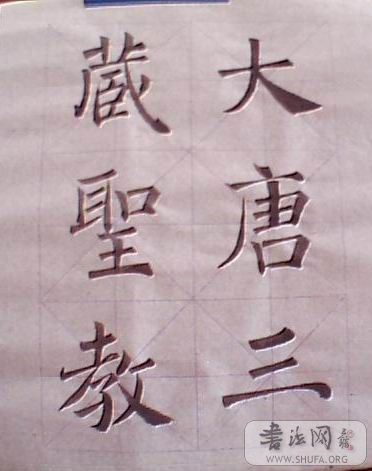 大唐三
藏聖教
書法网
WWW.SHUFA.ORG